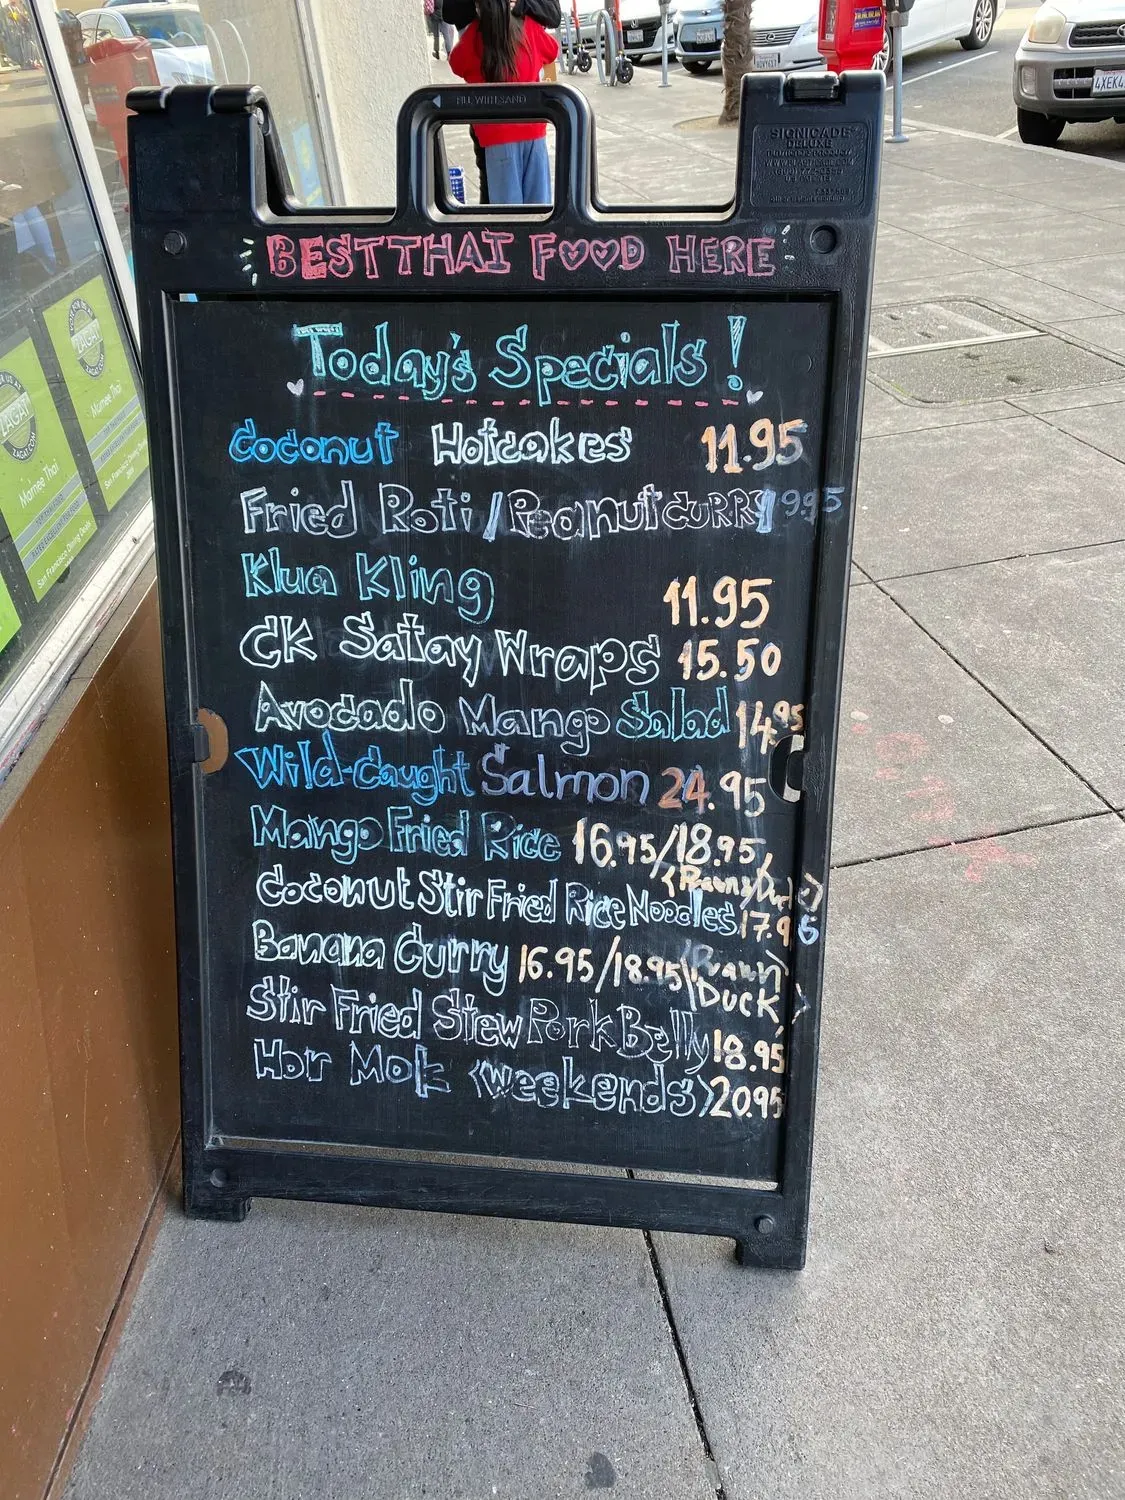 FILL WITH SAND
SIGNICADE
DELUXE
BEST THAI FOOD HERE
Today's Specials!
Coconut Hotcakes 11.95
Fried Roti/Peanut CURRY 9.95
Klua Kling 11.95
CK Satay Wraps 15.50
Avocado Mango Salad 14.95
Wild-Caught Salmon 24.95
Mango Fried Rice 16.95/18.95
(Prawns/Duck)
Coconut Stir Fried Rice Noodles 17.95
Banana Curry 16.95/18.95 (Prawn)
DUCK)
Stir Fried Stew Pork Belly 18.95
Hor Mok (weekends) 20.95
ZAGAT
ZAGAT.COM
Marnee Thai
ZAGAT
ZAGAT.COM
Marnee Thai
4XEK4